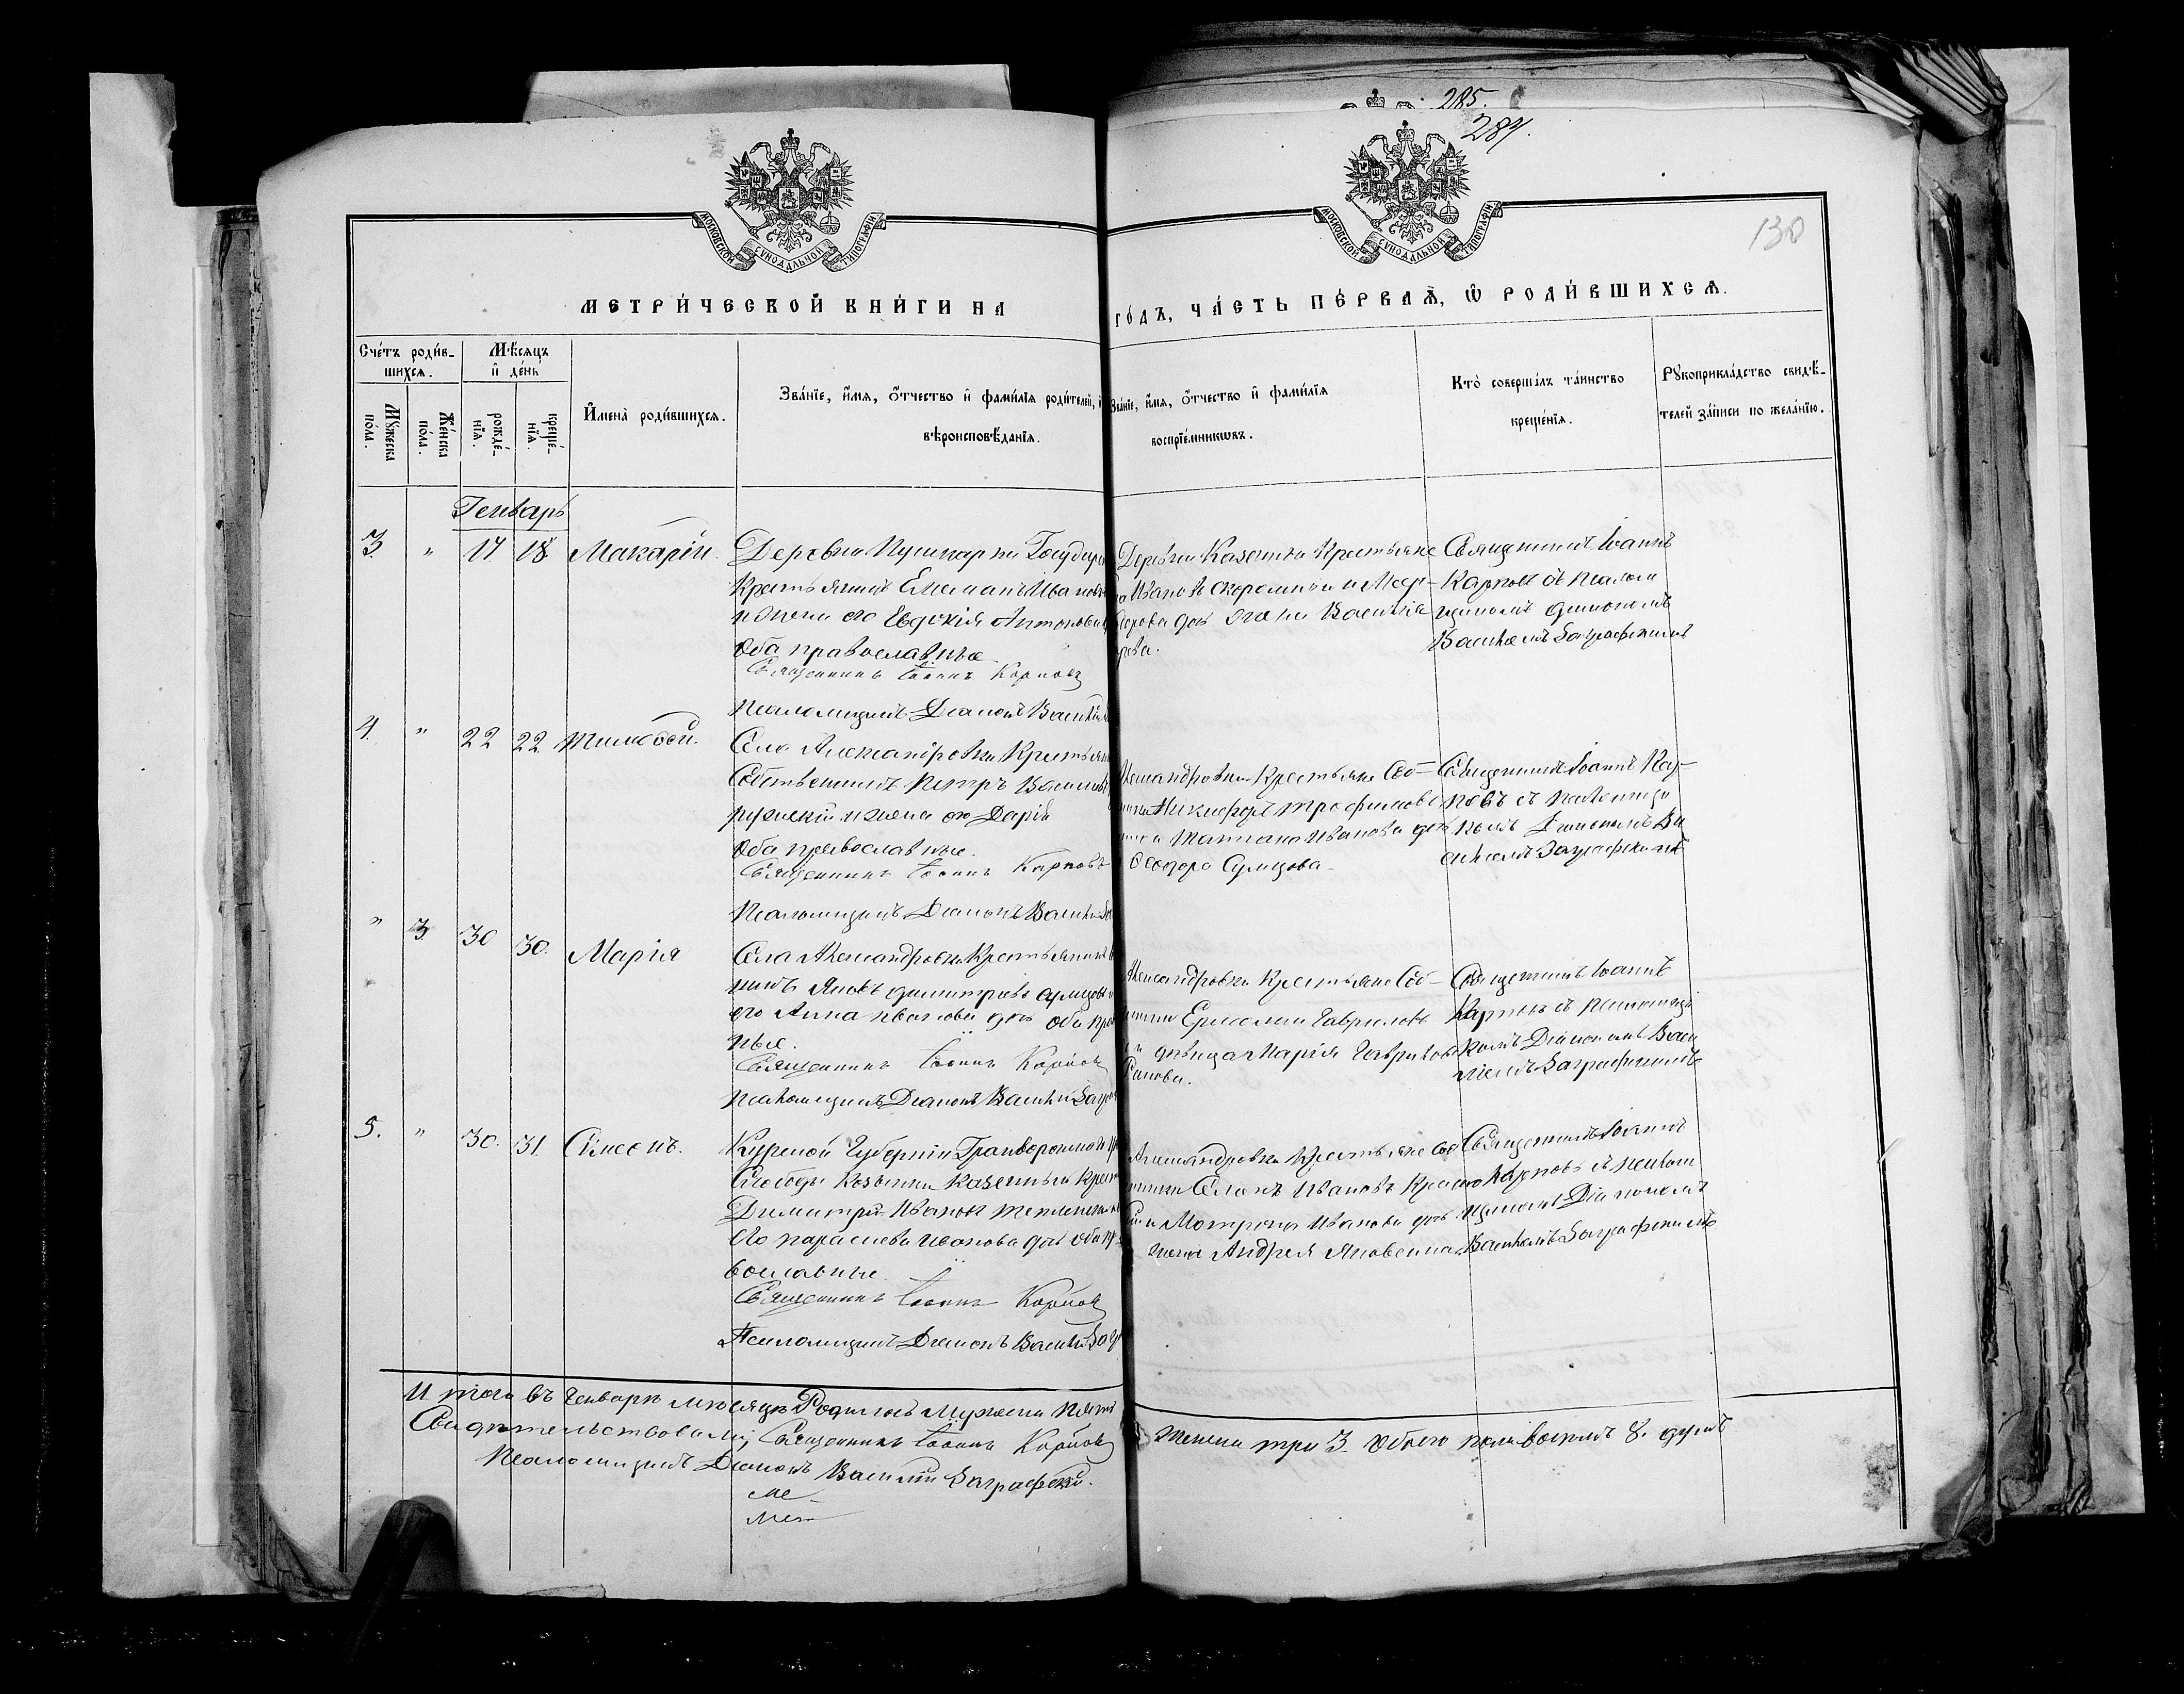 285.
284.
130
МОСКОВСКОЙ СѴНОДАЛЬНОЙ ТИПОГРАФІИ
МОСКОВСКОЙ СѴНОДАЛЬНОЙ ТИПОГРАФІИ
МЕТРИ́ЧЕСКОЙ КНИ́ГИ НА
ГО́ДЪ, ЧА́СТЬ ПЕ́РВАЯ, Ѡ РОДИ́ВШИХСЯ.
Сче́тъ роди́в-
шихся.
Мѣсяцъ
и де́нь
Мꙋжеска
по́ла.
Же́нска
по́ла.
рожде́-
нїя.
креще́-
нїя.
И҆мена̀ роди́вшихся.
Зва́нїе, и҆́мя, ѻ҆́тчество и҆ фами́лїя роди́телей,
вѣроисповѣ́данїя.
Зва́нїе, и҆́мя, ѻ҆́тчество и҆ фами́лїя
воспрїе́мникωвъ.
Кто̀ соверша́лъ та́инство
креще́нїя.
Рꙋкоприкла́дство свидѣ́-
телей за́писи по жела́нїю.
Генварь
3. " 17 18 Макарій
Деревни Пушкарни Государ
Крестьянинъ Ивановъ
и жена его Евдокія Антонова
Оба православные
Священникъ Іоаннъ Карповъ
Псаломщикъ Діаконъ Василій
Деревни Крестьяне
Иванъ и
дочь жена Василія
Священникъ Іоаннъ
Карповъ съ псалом
щикомъ Діакономъ
Василіемъ Заграфскимъ
4. " 22 22 Тимофей.
Села Александровки Крестьянинъ
Собственникъ Петръ Васильевъ
и жена его Дарія
Оба православные.
Священникъ Іоаннъ Карповъ
Псаломщикъ Діаконъ Василій За
Александровки Крестьяне Соб-
Никифоръ Трофимовъ
и Татіана Иванова дочь
Ѳеодора Сумцова.
Священникъ Іоаннъ Кар-
повъ съ псаломщи
комъ Діакономъ Ва
силіемъ Заграфскимъ
" 3. 30 30. Марія
Села Александровки Крестьянинъ
никъ Яковъ Димитріевъ Сумцовъ
его Анна Иванова дочь Оба пра
ные.
Священникъ Іоаннъ Карповъ
Псаломщикъ Діаконъ Василій Загра
Александровки Крестьяне Соб-
Гавриловъ
и дѣвица Марія Гаврилова
Священникъ Іоаннъ
Карповъ съ псаломщи
комъ Діакономъ Васи
ліемъ Заграфскимъ
5. " 30. 31 Симеонъ.
Курской Губерніи Грайворонского
Слободы Козинки Казенный Крест
Димитрій Ивановъ
его Параскева Иванова дочь Оба пра
вославные
Священникъ Іоаннъ Карповъ
Псаломщикъ Діаконъ Василій Загр
Александровки Крестьяне Соб
Ивановъ
Мотрона Иванова дочь
жена Андрея Яковенка
Священникъ Іоаннъ
Карповъ съ псалом
щикомъ Діакономъ
Василіемъ Заграфскимъ
Итого въ Генварѣ мѣсяцѣ Родилось Мужеска пять
женска три 3. Обоего пола восемь 8. душъ
Свидѣтельствовали; Священникъ Іоаннъ Карповъ
Псаломщикъ Діаконъ Василій Заграфскій.